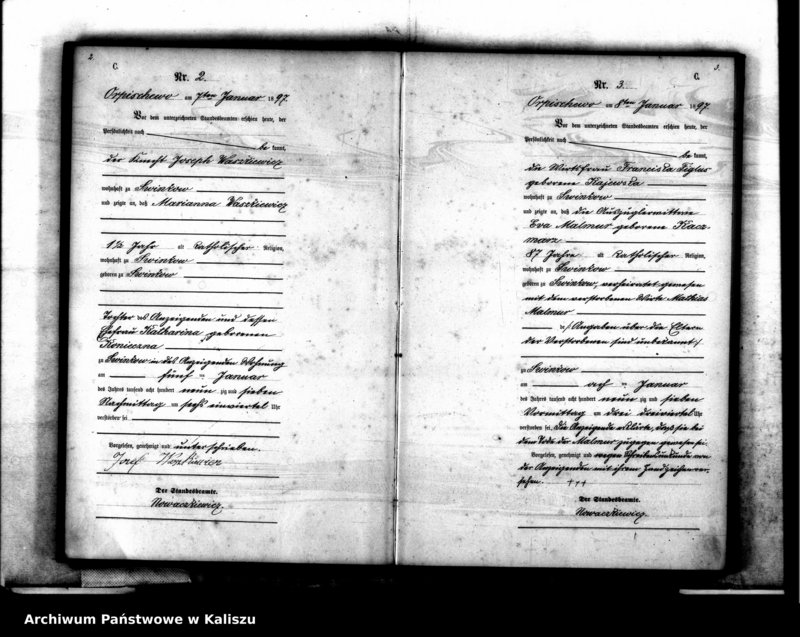 2.
C.
Nr. 2.
Orpischewo am 7ten Januar 1897
Vor dem unterzeichneten Standesbeamten erschien heute, der
Persönlichkeit nach
be kannt,
der Knecht Joseph Waszkiewicz
wohnhaft zu Swinkow
und zeigte an, daß Marianna Waszkiewicz
1¾ Jahr alt katholischer Religion,
wohnhaft zu Swinkow
geboren zu Swinkow
Tochter des Anzeigenden und dessen
Ehefrau Katharina geborenen
Konieczna
zu Swinkow in des Anzeigenden Wohnung
am fünf ten Januar
des Jahres tausend acht hundert neun zig und sieben
Nachmittag um sechs einviertel Uhr
verstorben sei
Vorgelesen, genehmigt und unterschrieben.
Józef
Der Standesbeamte.
Nowaczkiewicz.
3.
C.
Nr. 3.
Orpischewo am 8ten Januar 1897
Vor dem unterzeichneten Standesbeamten erschien heute, der
Persönlichkeit nach
be kannt,
die Wirthsfrau Franciska Figlus
geborene Kajewska
wohnhaft zu Swinkow
und zeigte an, daß die Auszüglerwittwe
Eva Malmur geborene Kacz-
marz
87 Jahre alt katholischer Religion,
wohnhaft zu Swinkow
geboren zu Swinkow, verheiratet gewesen
mit dem verstorbenen Wirth Mathias
Malmur
Angaben über die Eltern
der Verstorbenen sind unbekannt
zu Swinkow
am acht ten Januar
des Jahres tausend acht hundert neun zig und sieben
Vormittag um drei dreiviertel Uhr
verstorben sei. Die Anzeigende erklärte, daß sie bei
dem Tode der Malmur zugegen gewesen sei.
Vorgelesen, genehmigt und wegen Schreibensunkunde von
der Anzeigenden mit ihrem Handzeichen ver-
sehen. +++
Der Standesbeamte.
Nowaczkiewicz.
Archiwum Państwowe w Kaliszu